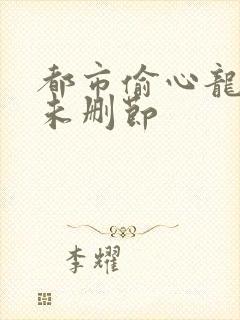 都市偷心龍
未删节
李耀